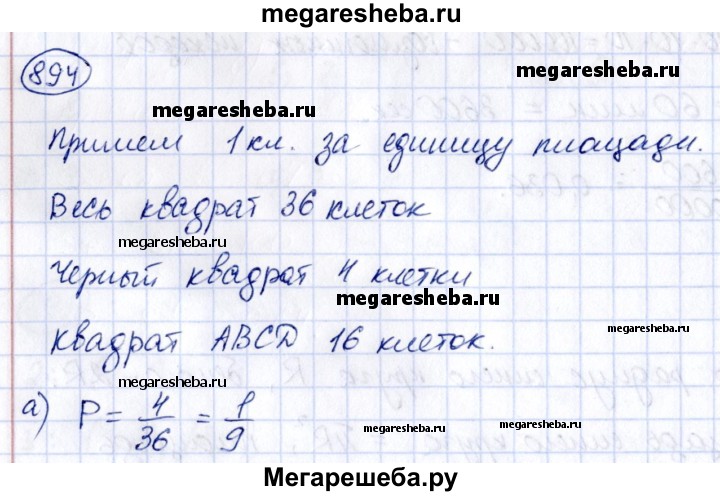 megaresheba.ru
894
megaresheba.ru
Примем 1 кл. за единицу площади.
megaresheba.ru
Весь квадрат 36 клеток
megaresheba.ru
Черный квадрат 4 клетки
megaresheba.ru
квадрат ABCD 16 клеток.
megaresheba.ru
megaresheba.ru
а) P = 4/36 = 1/9
megaresheba.ru
megaresheba.ru
Мегарешеба.ру